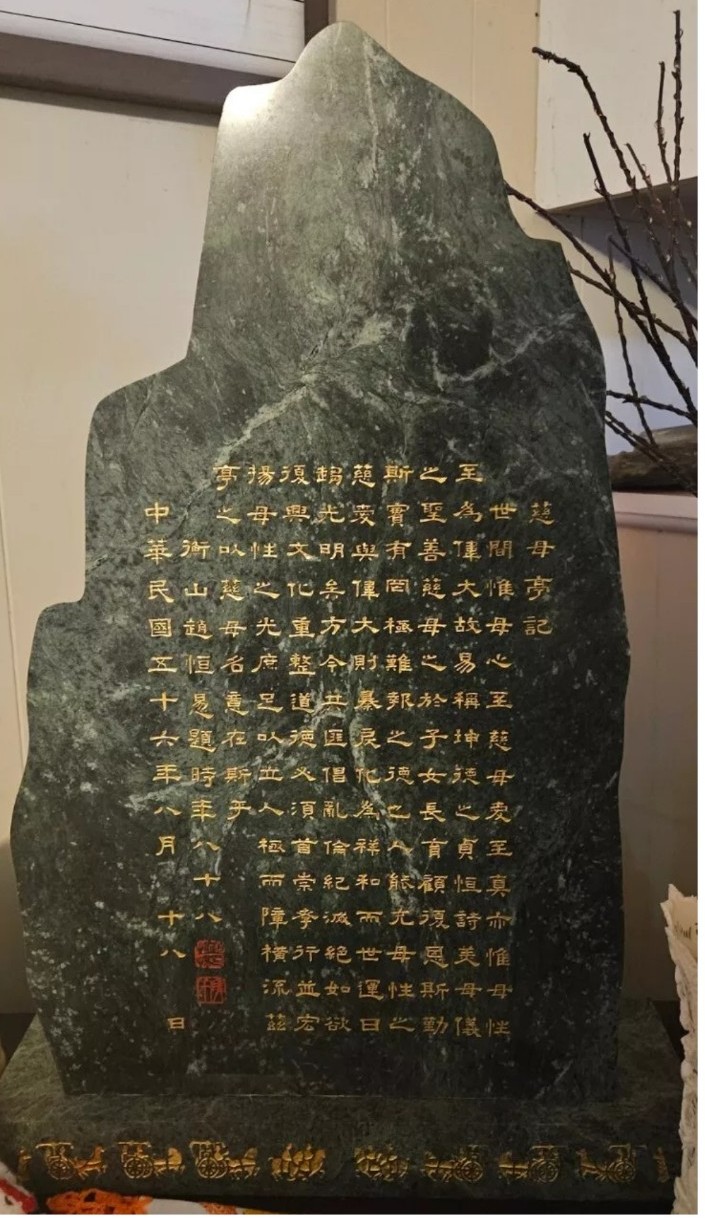 慈母亭記
世間惟母心至慈母愛至真亦惟母性
至為偉大故易稱坤德之貞恒詩美母儀
之聖善慈母之於子女長育顧復恩斯勤
斯實有罔極難報之德也人能充母性之
慈愛與偉大則暴戾化為祥和而世運日
趨光明矣方今共匪倡亂倫紀滅絕如欲
復興文化重整道德必須首崇孝行並宏
揚母性之光庶足以立人極而障橫流茲
亭之以慈母名意在斯乎
衡山趙恒惕題時年八十八
中華民國五十六年八月十八日